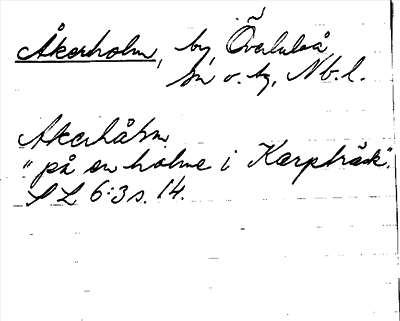 Åkerholm, by, Överluleå
sn o. tg, Nb. l.
Åkerhåłm
"på en holme i Karpträsk".
SL 6:3 s. 14.